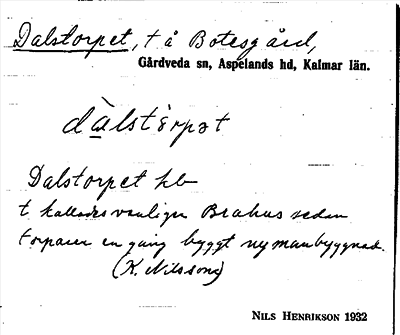 Dalstorpet, t å Botesgård,
Gårdveda sn, Aspelands hd, Kalmar län.
dàlstòrpət
Dalstorpet hb
t kallades vanligen Brahus sedan
torparen en gång byggt ny manbyggnad.
(K. Nilsson)
NILS HENRIKSON 1932